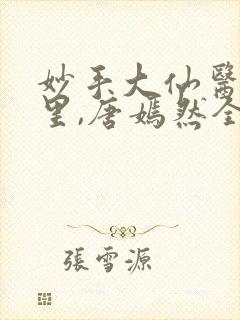 妙手大仙醫
里,唐嫣然全
張雪源